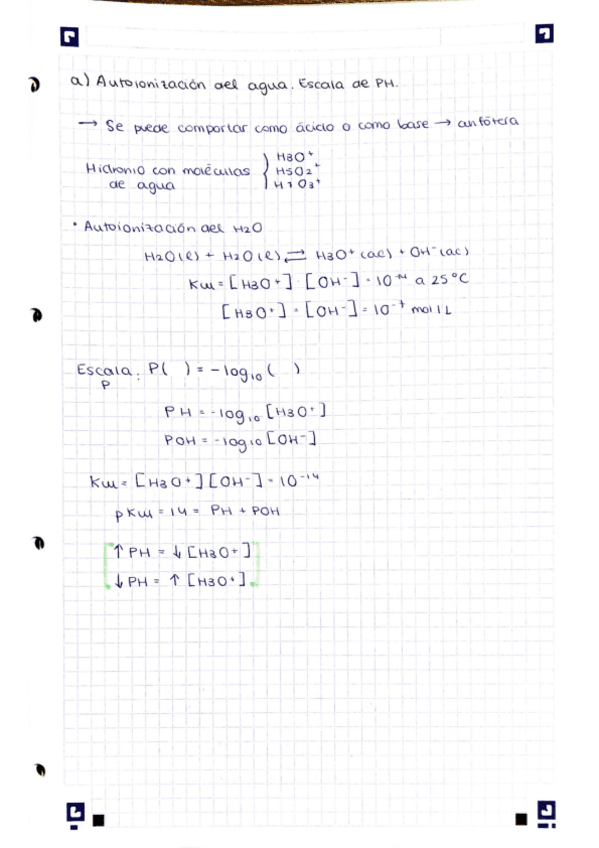 a) Autoionización del agua. Escala de PH.
→ Se puede comportar como ácido o como base → anfótera
Hidronio con moléculas de agua { H3O+
H5O2+
H7O3+
· Autoionización del H2O
H2O(l) + H2O(l) ⇌ H3O+(ac) + OH-(ac)
Kw = [H3O+] [OH-] = 10^-14 a 25°C
[H3O+] = [OH-] = 10^-7 mol/L
Escala: P( ) = -log10 ( )
P
PH = -log10 [H3O+]
POH = -log10 [OH-]
Kw = [H3O+][OH-] = 10^-14
pKw = 14 = PH + POH
↑ PH = ↓ [H3O+]
↓ PH = ↑ [H3O+]